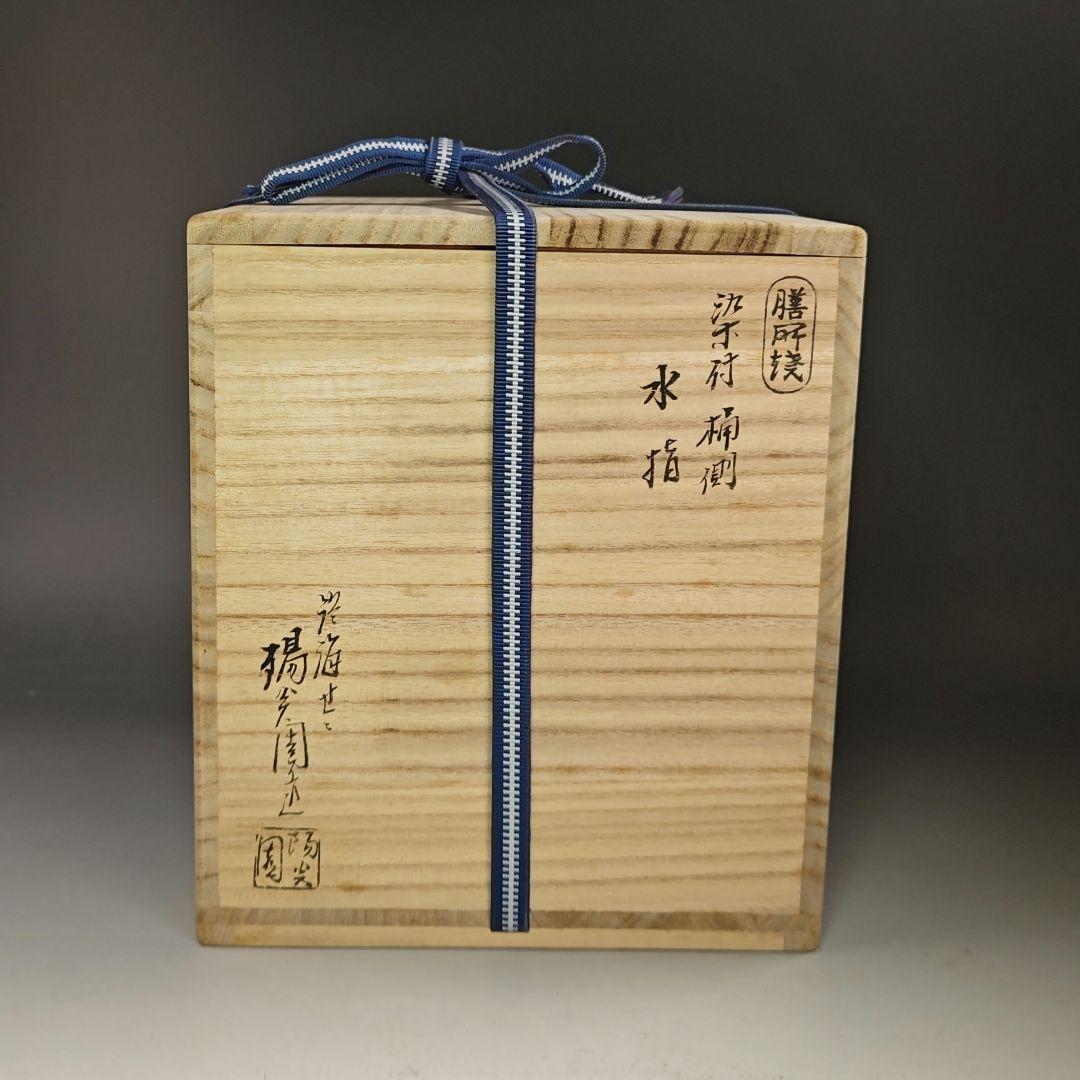 膳所焼
染付 桶側
水指
陽炎園造
陽炎園